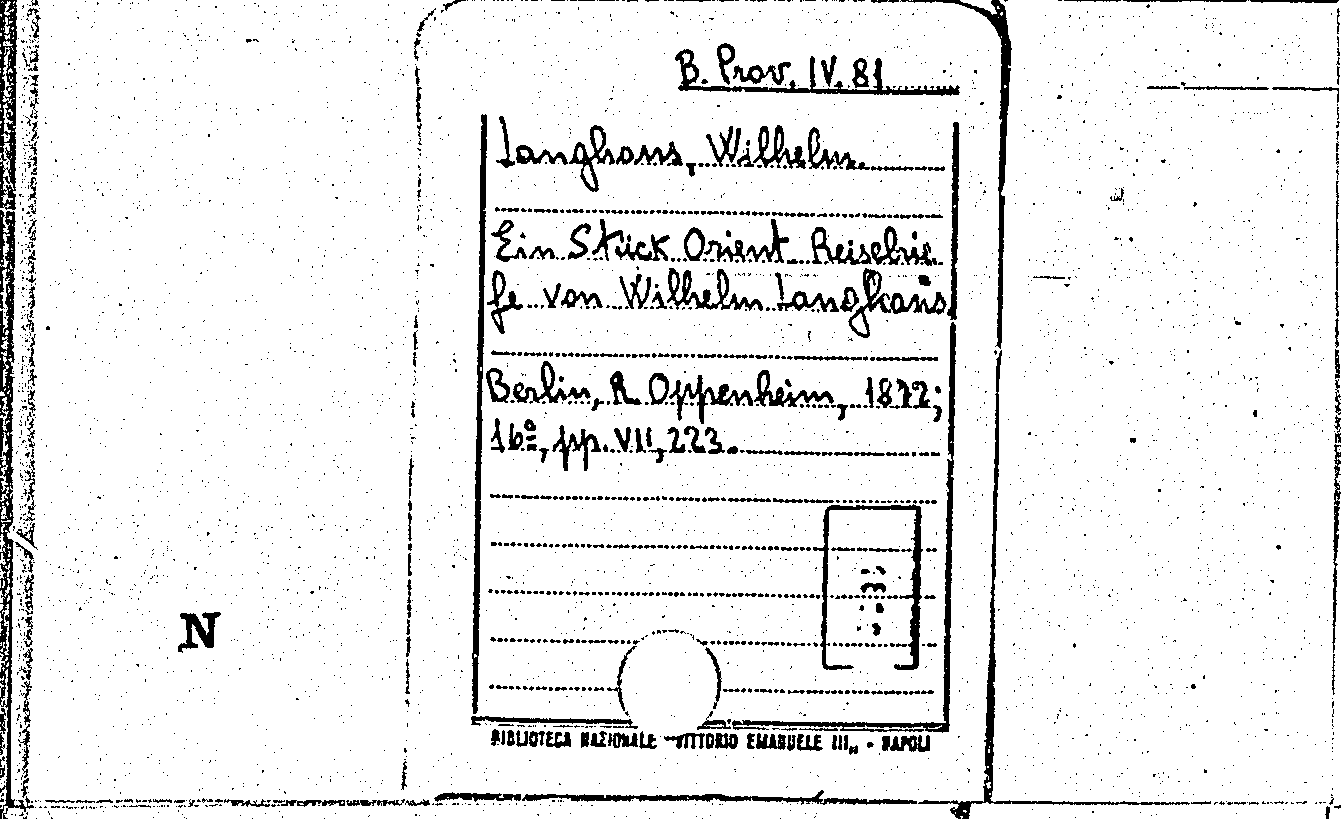 B. Prov. IV. 81
Langhans, Wilhelm.
Ein Stück Orient. Reisebrie-
fe von Wilhelm Langhans.
Berlin, R. Oppenheim, 1872;
16º, pp. VII, 223.
N
BIBLIOTECA NAZIONALE "VITTORIO EMANUELE III" - NAPOLI